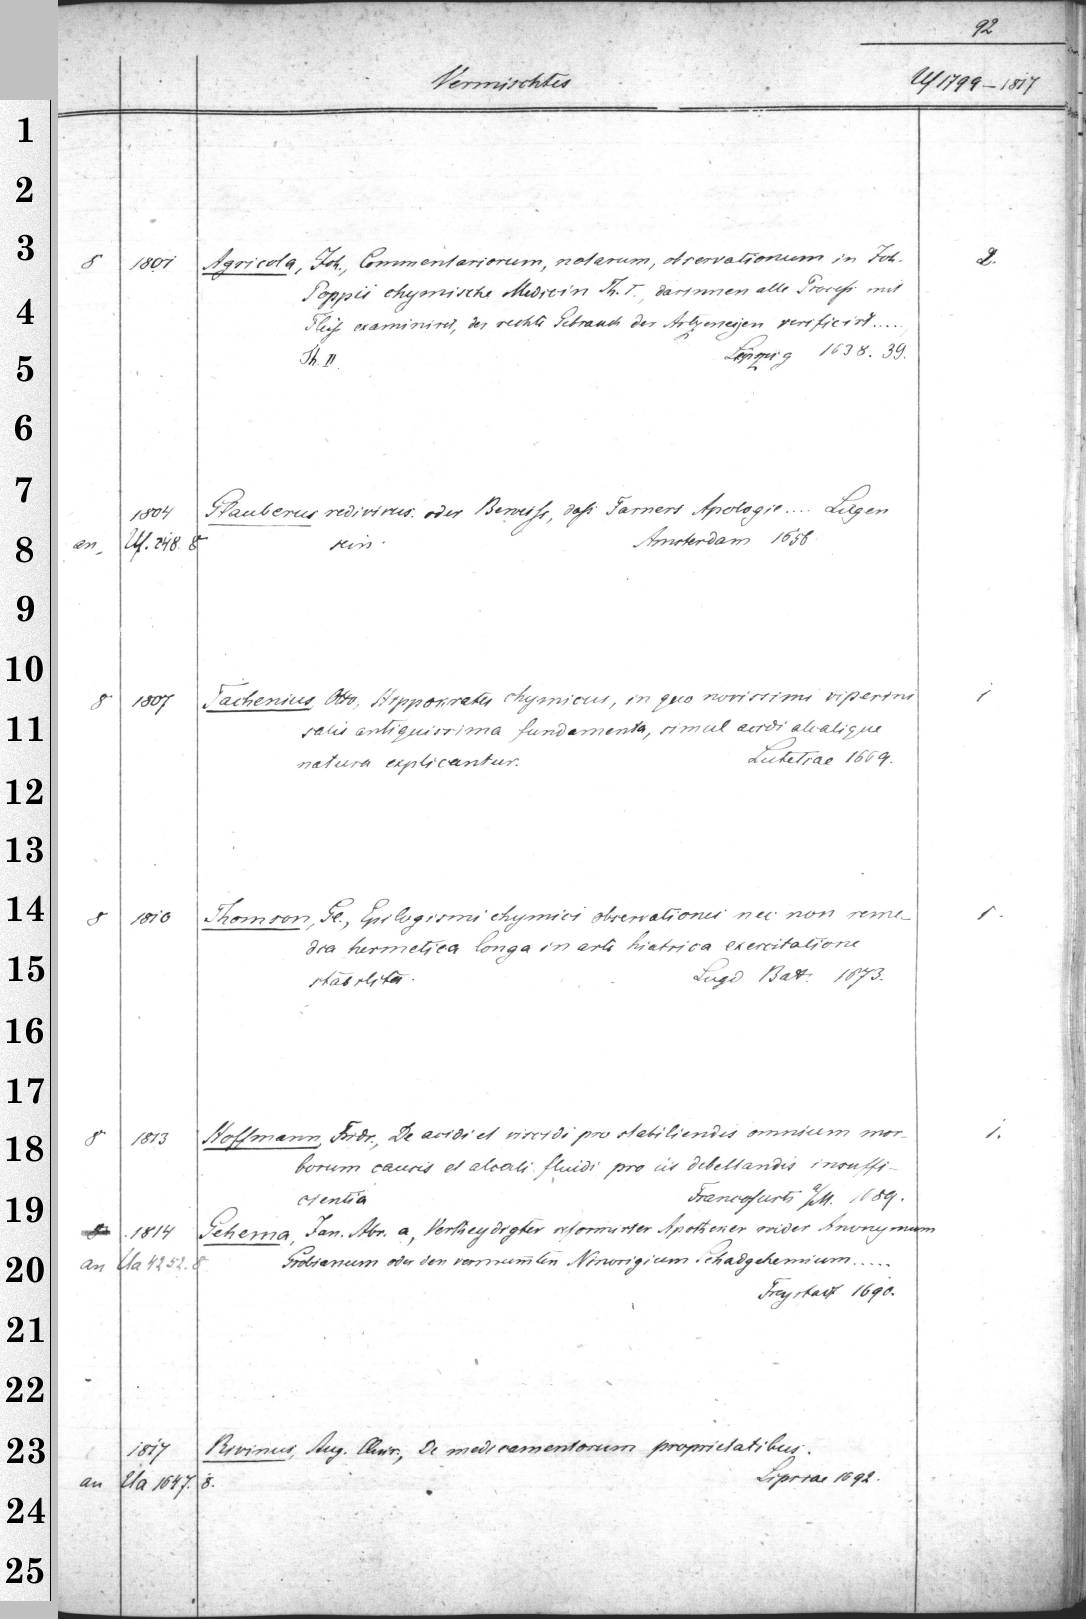 92
Vermischtes Uf 1799 – 1817
1
2
3
8 1801 Agricola, Joh., Commentariorum, notarum, observationum in Joh. 2.
4
Poppii chymische Medicin Th. I., darinnen alle Process mit
Fleiß examiniret, der rechte Gebrauch der Artzeneyen verificirt.....
5
Th. II. Leipzig 1638. 39.
6
7
1804 Glauberus redivivus oder Beweiss, daß Farners Apologie .... Lügen
8
an Uf. 248. 8 sein. Amsterdam 1656
9
10
8 1807 Tachenius, Otto, Hippokrates chymicus, in quo novissimi viperini 1
11
salis antiquissima fundamenta, simul acidi alcalique
natura explicantur. Lutetiae 1669.
12
13
14
8 1810 Thomson, Ge., Epilogismi chymici observationes nec non reme- 1.
dia hermetica longa in arte hiatrica exercitatione
15
stabilita. Lugd Bat. 1673.
16
17
18
8 1813 Hoffmann, Fridr., De acidi et viscidi pro stabiliendis omnium mor- 1.
borum causis et alcali fluidi pro iis debellandis insuffi-
19
cientia Francofurti a/M. 1689.
1814 Gehema, Jan. Abr. a, Vertheydigter reformirter Apotheker wider Anonymum
20
an Ua 4252. 8 Grobianum oder den vermumten Schadgehemium .....
Freystadt 1690.
21
22
23
1817 Rivinus, Aug. Quir., De medicamentorum proprietatibus.
24
an Ua 1647. 8. Lipsiae 1692.
25